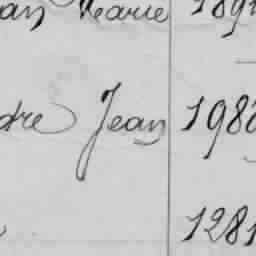 an Marie 189
dre Jean 198
1281